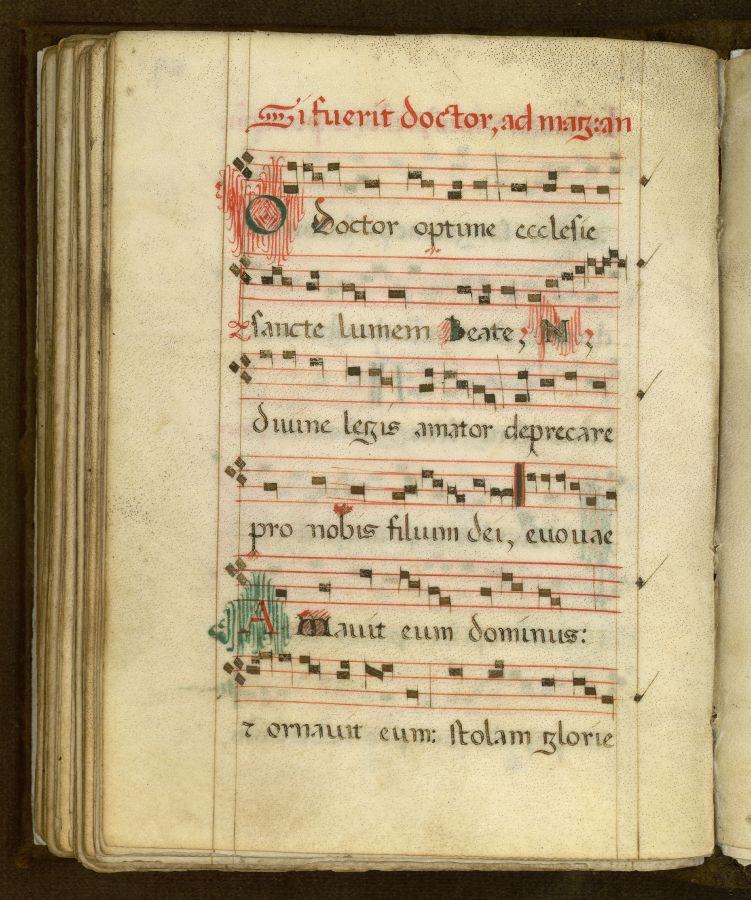 Si fuerit doctor, ad mag: an
O Doctor optime ecclesie
⁊ sancte lumem Beate; N;
diuine legis amator deprecare
pro nobis filium dei, euouae
A mauit eum dominus:
⁊ ornauit eum: stolam glorie